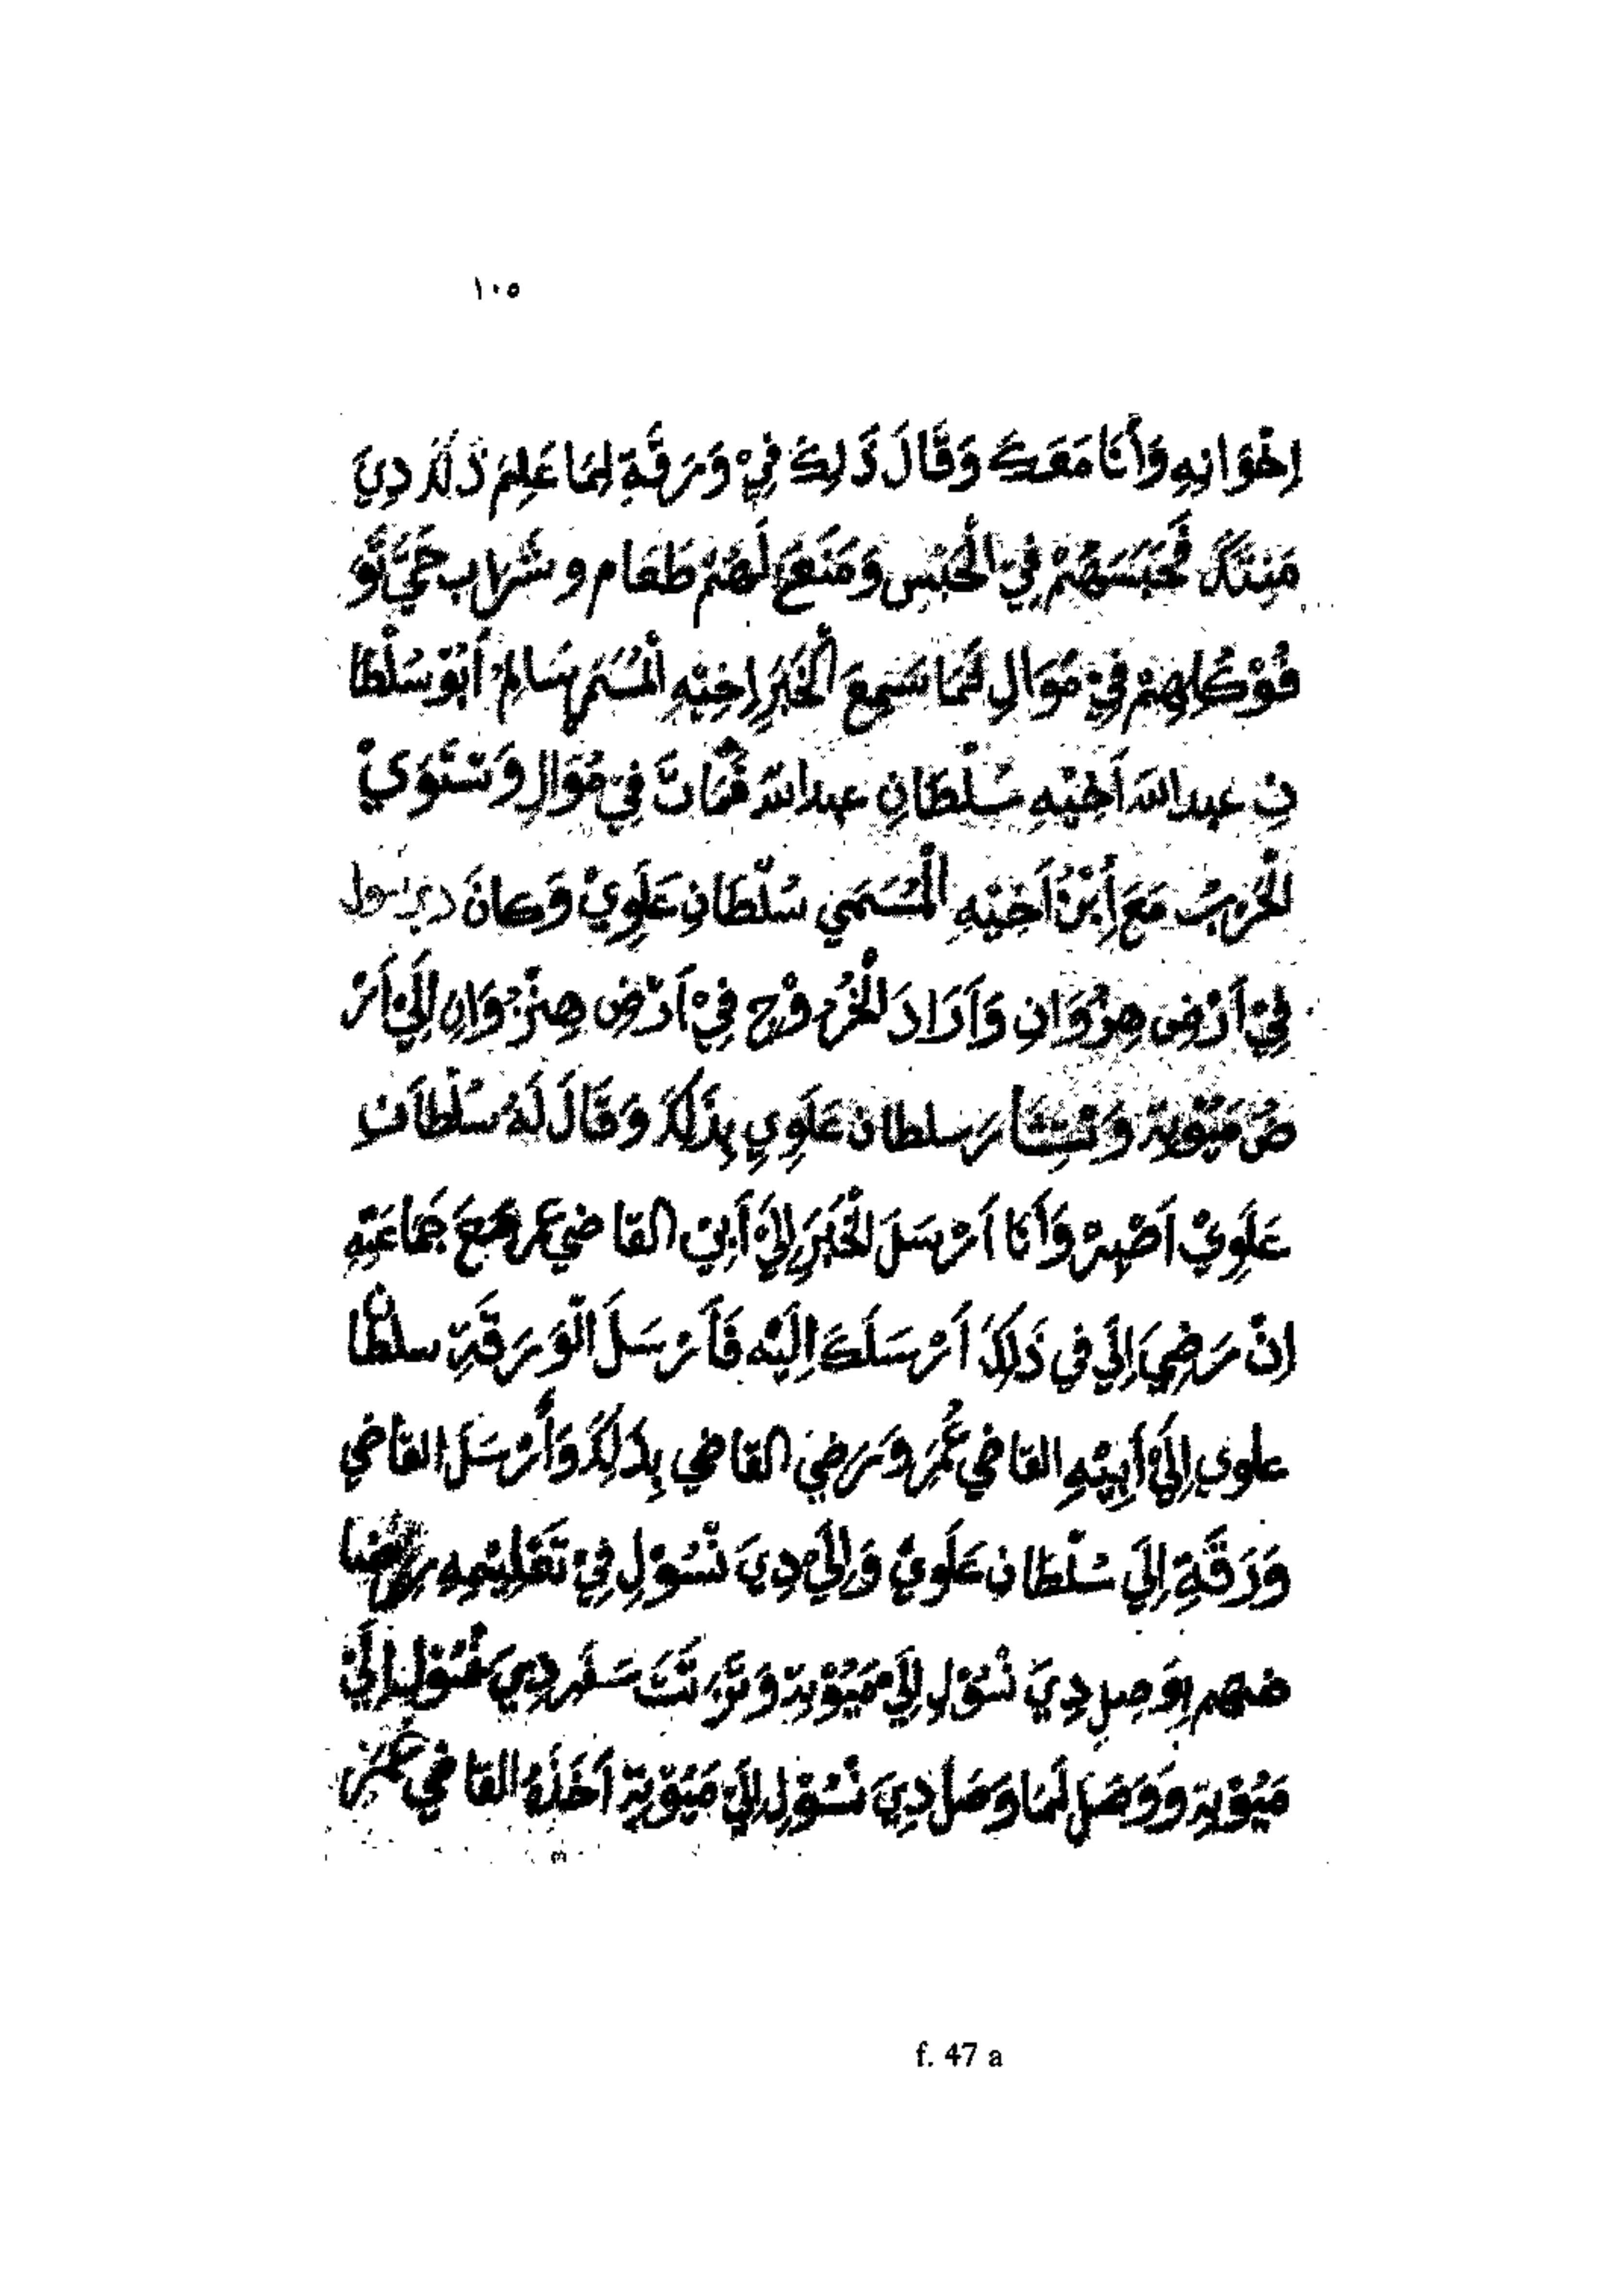 ١٠٥
اِخْوَانِهِ وَأَنَا مَعَكَ وَقَالَ ذَلِكَ فِيْ وَرَقَةِ لِمَا عَلِمَ ذَلِكَ دِيَ
فَحَبَسَهُمْ فِيْ الْحَبْسِ وَمَنَعَ لَهُمْ طَعَام وشَرَاب حَتَّي
فِيْ مُوَالِ لَمَا سَمِعَ الْخَبَرِ اِخِيْهِ سَالِمْ أَبُوْ سُلْطَا
نِ عبدالله اَخِيْهِ سُلْطَانِ عبدالله فَمَاتَ فِيْ مُوَالِ وَسَتَوَيْ
لْحَرْبُ مَعَ أَبْنُ اَخِيْهِ الْمُسَمَي سُلْطَانِ عَلَوِيْ وَكَانَ دي سول
فِيْ اَرْضِ هِنْزُوَانِ وَاَرَادَ لْخُرُوْجِ فِيْ اَرْضِ هِنْزُوَانِ اِلَيْ اَرْ
ضُ مَيُوْتِة وَسْتِشَارَ سلطان عَلَوِي بِذَلِكَ وَقَالَ لَهُ سُلْطَانِ
عَلَوِيْ اَصْبِرْ وَأَنَا اَرْسَلَ لْخَبَرَ اِلَيْ اَبِيْ القاضي عمر مَعَ جَمَاعَتِهِ
اِنْ رَضِيَ اِلَي في ذَلِكَ اَرْسَلَكَ اِلَيْه فَاَرْسَلَ الْوَرَقَةِ سلطان
علوي اِلَيْ اَبِيْهِ القاضي عُمَرَ وَرَضِيَ القاضي بِذَلِكَ وَأَرْسَلَ القاضي
وَرَقَةِ اِلَي سُلْطَان عَلَوِيْ وَاِلَيْ دِيَ سُوْلِ فِيْ تَعْلِيْمِهِ
بِوَصِلِ دِيَ سُوْلِ اِلَيْ مَيُوْتِة سَفَر دِيَ سُوْلِ اِلَيْ
مَيُوْتِة وَوَصَلَ لَمَا وَصَلَ دِيَ سُوْلِ اِلَيْ مَيُوْتِة اَخَذَهُ القاضي عُمَرْ
f. 47 a